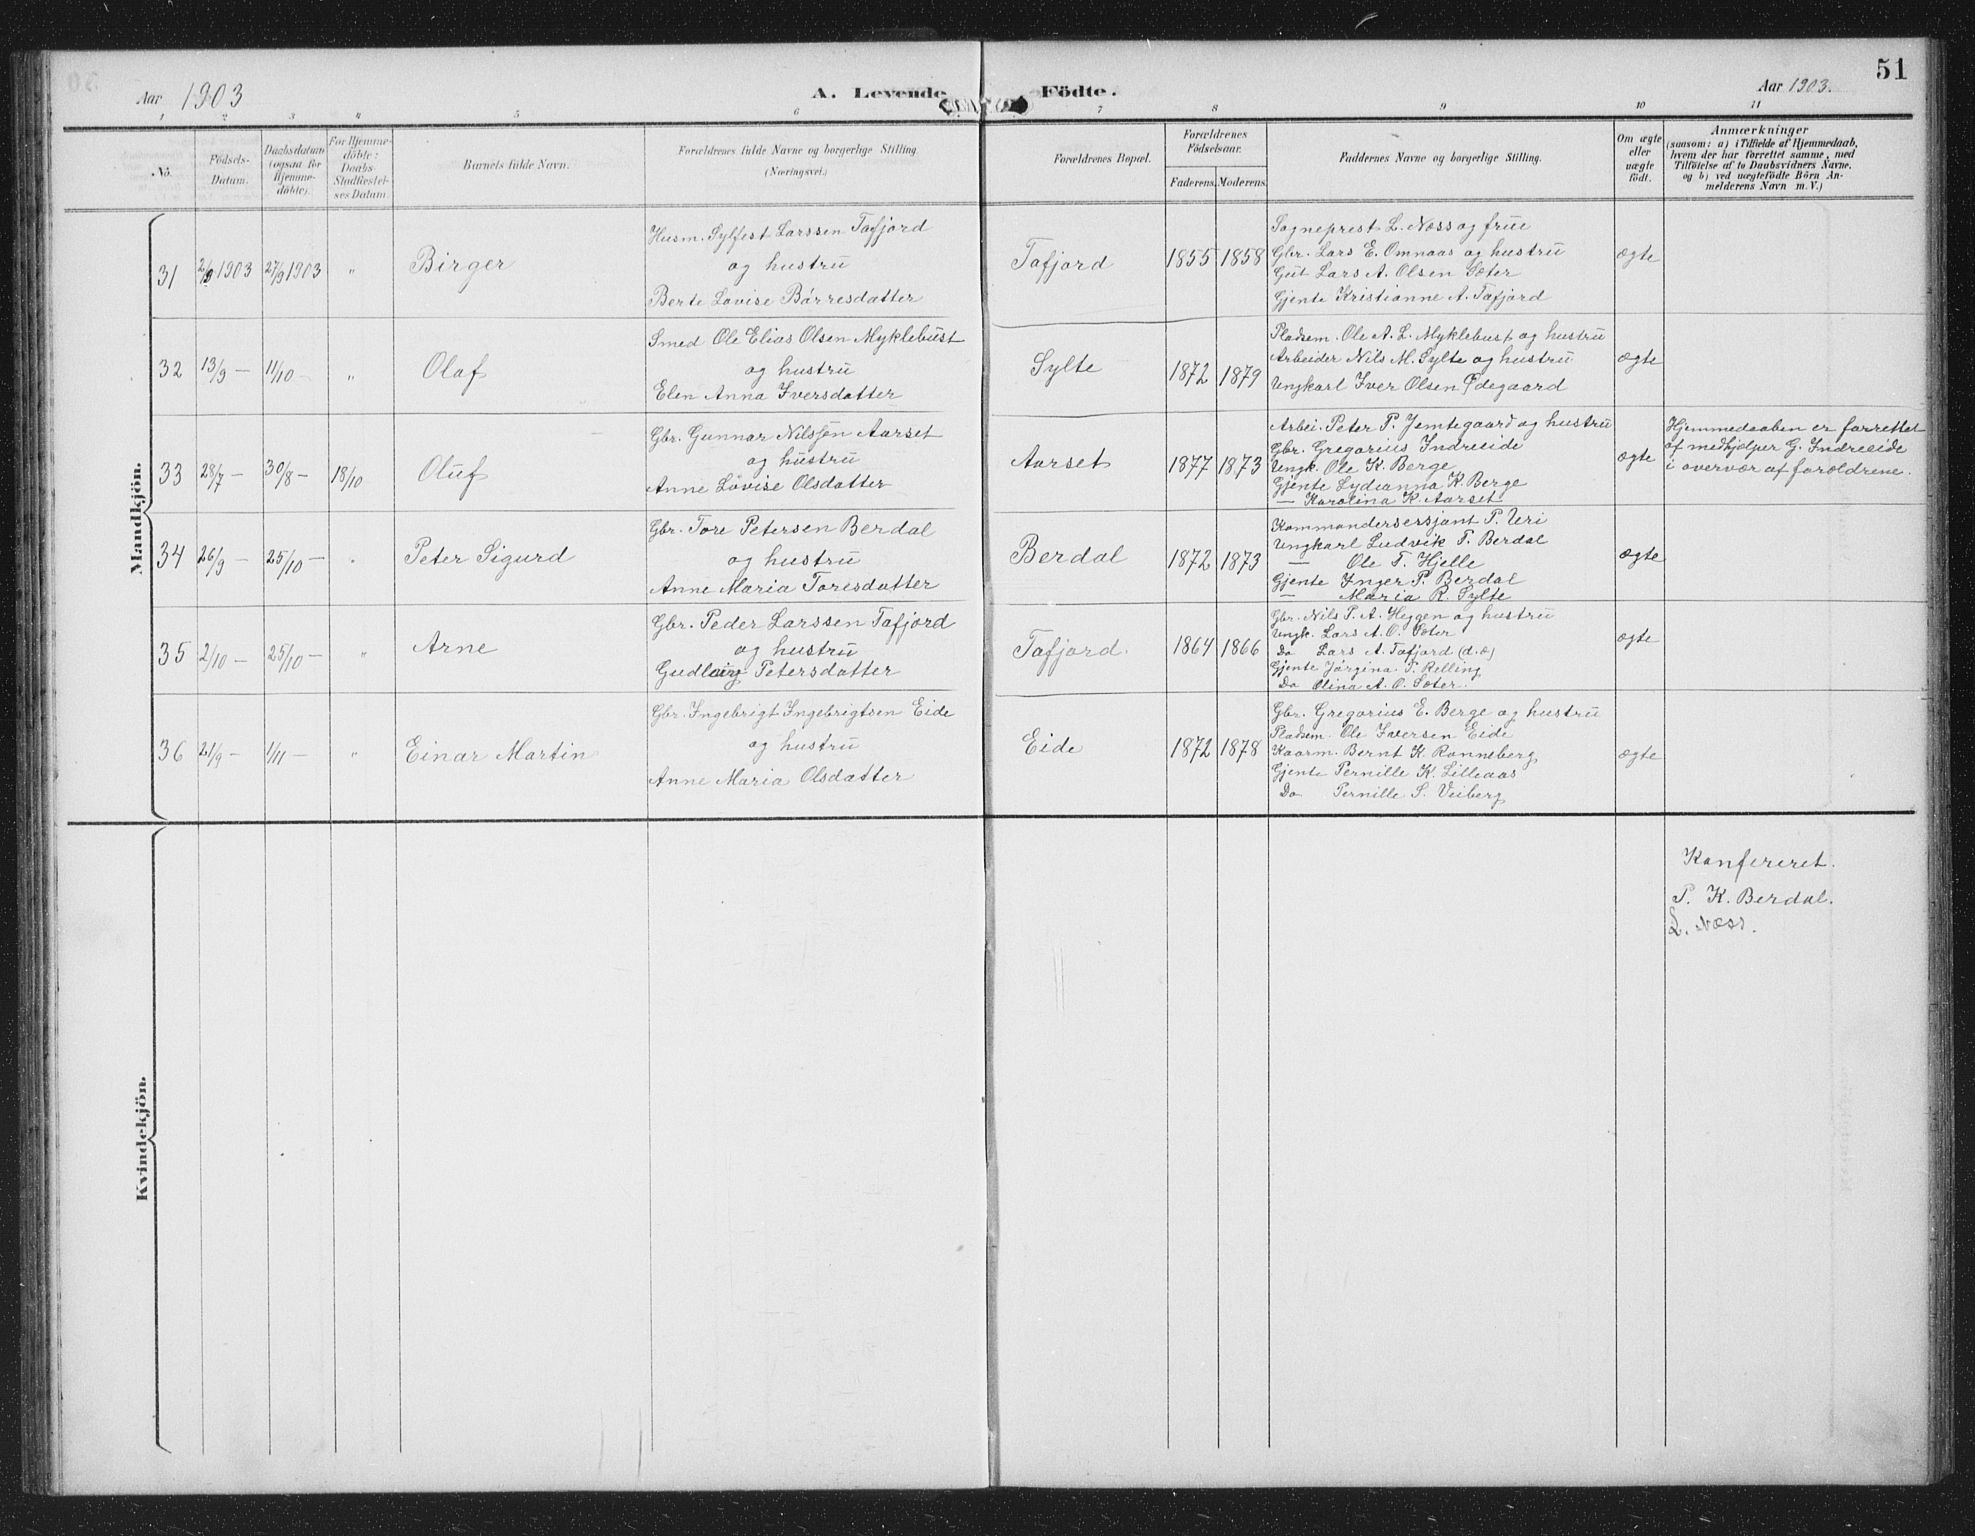 51
Aar 1903
A. Levende Födte.
Aar 1903.
1 2 3 4 5 6 7 8 9 10 11
No.
Födsels-Datum.
Daabsdatum (ogsaa for Hjemme-döbte).
For Hjemme-döbte: Daabs-Stadfæstel-ses Datum.
Barnets fulde Navn.
Forældrenes fulde Navne og borgerlige Stilling.
(Næringsvei.)
Forældrenes Bopæl.
Forældrenes Födselsaar.
Faderens. Moderens.
Faddernes Navne og borgerlige Stilling.
Om ægte eller uægte födt.
Anmærkninger
(saasom: a) i Tilfælde af Hjemmedaab,
hvem der har forrettet samme, med
Tilföielse af to Daabsvidners Navne,
og b) ved uægtefödte Börn An-
melderens Navn m. V.)
Mandkjön.
31 2/9 1903 27/9 1903 " Birger
Husm. Sylfest Larssen Tafjord
og hustru
Berte Lovise Bårresdatter
Tafjord 1855 1858
Sogneprest L. Næss og frue
Gbr. Lars E. Omnaas og hustru
Gut Lars A. Olsen Sæter
Gjente Kristianne A. Tafjord
ægte
32 13/9 — 11/10 — " Olaf
Smed Ole Elias Olsen Myklebust
og hustru
Elen Anna Iversdatter
Sylte 1872 1879
Pladsm. Ole A. L. Myklebust og hustru
Arbeider Nils M. Sylte og hustru
Ungkarl Iver Olsen Ødegaard
ægte
33 28/7 — 30/8 — 18/10 Oluf
Gbr. Gunnar Nilssen Aarset
og hustru
Anne Lovise Olsdatter
Aarset 1877 1873
Arbei. Peter P. Jemtegaard og hustru
Gbr. Gregorius Indreeide
Ungk. Ole K. Berge
Gjente Lydianna K. Berge
— Karolina K. Aarset
ægte
Hjemmedaaben er forrettet
af medhjælper G. Indreeide
i overvær af forældrene.
34 26/9 — 25/10 — " Peter Sigurd
Gbr. Tore Petersen Berdal
og hustru
Anne Maria Toresdatter
Berdal 1872 1873
Kommandersersjant P. Uri
Ungkarl Ludvik T. Berdal
— Ole T. Hjelle
Gjente Inger P. Berdal
— Maria R. Sylte
ægte
35 2/10 — 25/10 — " Arne
Gbr. Peder Larssen Tafjord
og hustru
Gudlaug Petersdatter
Tafjord. 1864 1866
Gbr. Nils P. A. Heggen og hustru
Ungk. Lars A. O. Sæter
Do Lars A. Tafjord (d.æ)
Gjente Jørgina P. Relling
Do Olina A. O. Sæter.
ægte
36 21/9 — 1/11 — " Einar Martin
Gbr. Ingebrigt Ingebrigtsen Eide
og hustru
Anne Maria Olsdatter
Eide 1872 1878
Gbr. Gregorius E. Berge og hustru
Pladsm. Ole Iversen Eide
Kaarm. Bernt K. Ronneberg
Gjente Pernille K. Lilleaas
Do Pernille S. Veiberg
ægte
Kvindekjön.
Konfereret.
P. K. Berdal.
L. Næss.